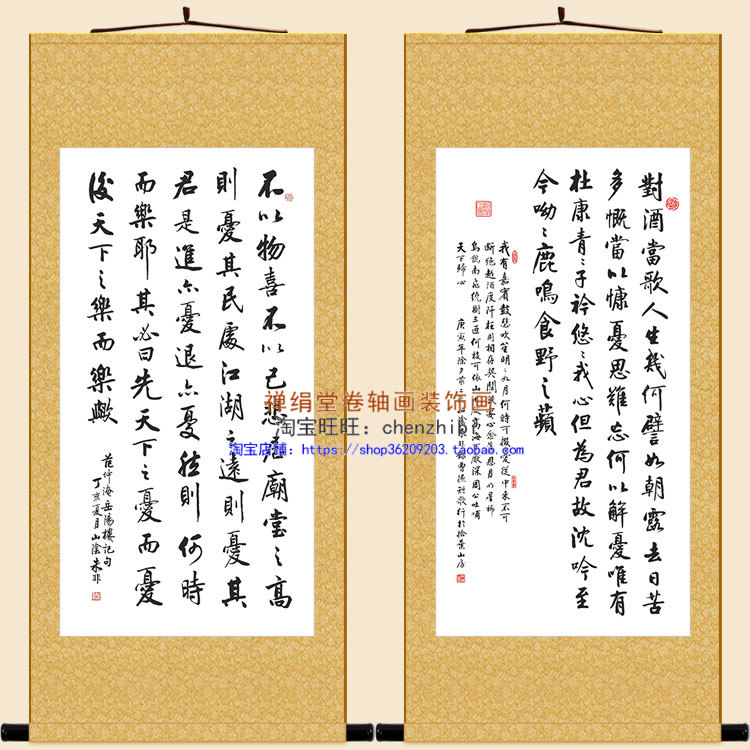 不以物喜不以己悲居廟堂之高
則憂其民處江湖之遠則憂其
君是進亦憂退亦憂然則何時
而樂耶其必曰先天下之憂而憂
後天下之樂而樂歟
范仲淹岳陽樓記句
丁亥夏月山陰朱非
對酒當歌人生幾何譬如朝露去日苦
多慨當以慷憂思難忘何以解憂唯有
杜康青々子衿悠々我心但為君故沈吟至
今呦々鹿鳴食野之蘋
我有嘉賓鼓瑟吹笙明々如月何時可掇憂從中來不可
斷絕越陌度阡枉用相存契闊談讌心念舊恩月明星稀
烏鵲南飛繞樹三匝何枝可依山不厭高海不厭深周公吐哺
天下歸心 庚寅年除夕前 山陰朱非錄曹操短歌行於拾葉山房
禅绢堂卷轴画装饰画
淘宝旺旺：chenzhibi
淘宝店铺：https://shop36209203.taobao.com